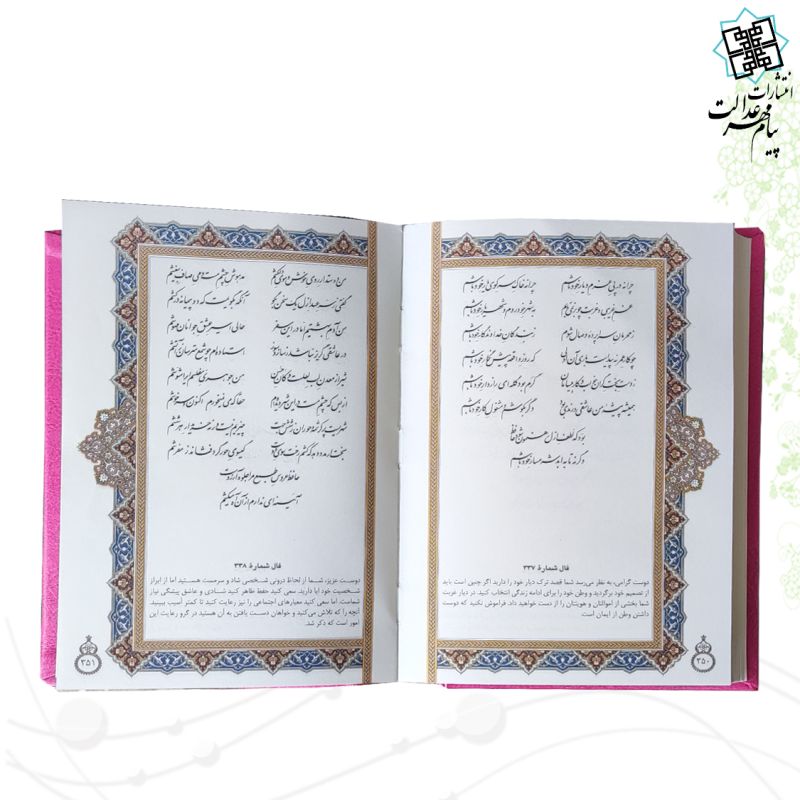 انتشارات
پیام مهر عدالت
چرا نه در پی عزم دیار خود باشم چرا نه خاک سر کوی یار خود باشم
غم غریبی و غربت چو بر نمی‌تابم به شهر خود روم و شهریار خود باشم
ز محرمان سراپرده وصال شوم ز بندگان خداوندگار خود باشم
چو کار عمر نه پیداست باری آن اولی که روز واقعه پیش نگار خود باشم
ز دست بخت گران خواب و کار بی‌سامان گرم بود گله‌ای رازدار خود باشم
همیشه پیشه من عاشقی و رندی بود دگر بکوشم و مشغول کار خود باشم
بود که لطف ازل رهنمون شود حافظ
وگرنه تا به ابد شرمسار خود باشم
فال شمارهٔ ۳۳۷
دوست گرامی، به نظر می‌رسد شما قصد ترک دیار خود را دارید اگر چنین است باید
از تصمیم خود برگردید و وطن خود را برای ادامه زندگی انتخاب کنید. در دیار غربت
شما بخشی از اموالتان و هویتتان را از دست خواهید داد. فراموش نکنید که دوست
داشتن وطن از ایمان است.
۳۵۰
من دوستدار روی خوش و موی دلکشم مدهوش چشم مست و می صاف بی‌غشم
گفتی ز سر عهد ازل یک سخن بگو آنگه بگویمت که دو پیمانه درکشم
من آدم بهشتیم اما در این سفر حالی اسیر عشق جوانان مهوشم
در عاشقی گزیر نباشد ز ساز و سوز استاده‌ام چو شمع مترسان ز آتشم
شیراز معدن لب لعل است و کان حسن من جوهری مفلسم ایرا مشوشم
از بس که چشم مست در این شهر دیده‌ام حقا که می نمی‌خورم اکنون و سرخوشم
شهریست پر کرشمه حوران ز شش جهت چیزیم نیست ورنه خریدار هر ششم
بخت ار مدد دهد که کشم رخت سوی دوست گیسوی حور گرد فشاند ز مفرشم
حافظ عروس طبع مرا جلوه آرزوست
آیینه‌ای ندارم از آن آه می‌کشم
فال شمارهٔ ۳۳۸
دوست عزیز، شما از لحاظ درونی شخصی شاد و سرمست هستید اما از ابراز
شخصیت خود ابا دارید. سعی کنید حفظ ظاهر کنید شادی و عاشق پیشگی نیاز
شماست. اما سعی کنید معیارهای اجتماعی را نیز رعایت کنید تا کمتر آسیب ببینید.
آنچه را که تلاش می‌کنید و خواهان دست یافتن به آن هستید در گرو رعایت این
امور است که ذکر شد.
۳۵۱